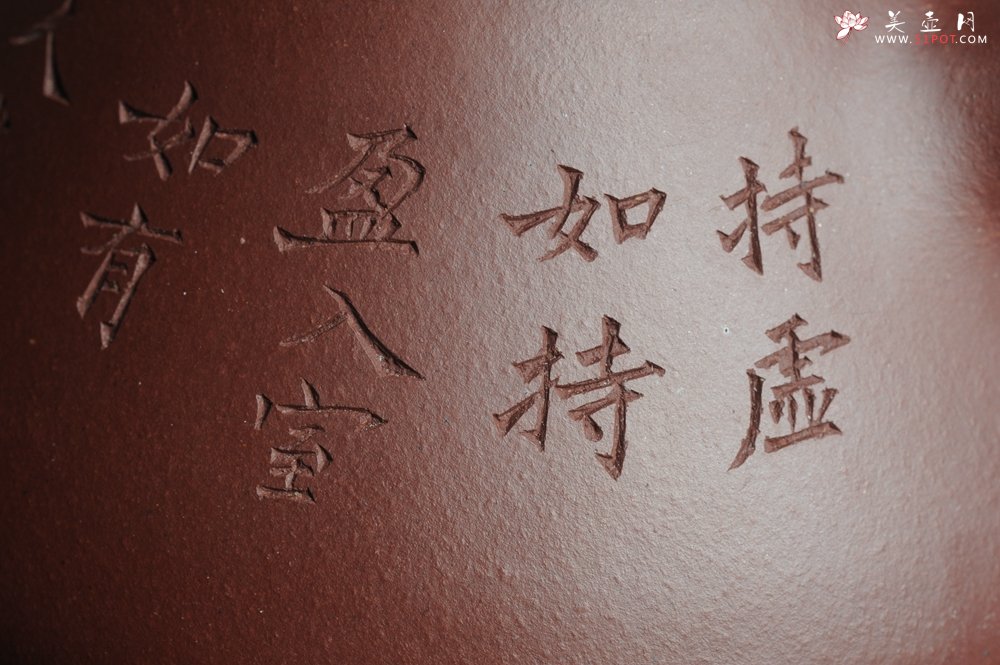 持虚
如持
盈入室
如有
美壶网
WWW.51POT.COM